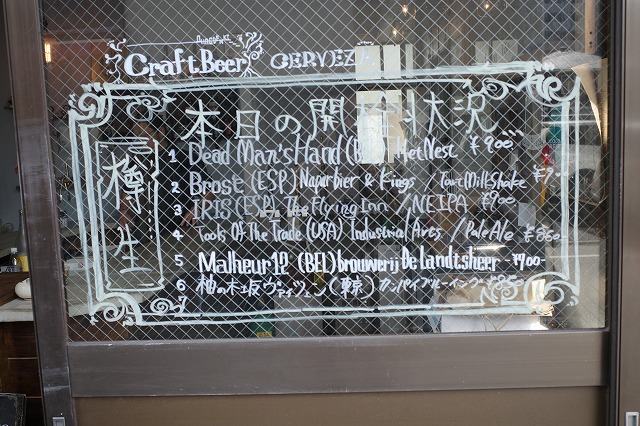 Craft Beer CERVEZA
本日の開栓状況
樽生
1 Dead Man's Hand (B HetNest ¥900
2 Brose (ESP) Naparbier & Kings / Tart MilkShake
3 IRIS (ESP) The Flying Inn / NEIPA ¥900
4 Tools Of The Trade (USA) Industrial Arts / Pale Ale ¥850
5 Malheur12 (BEL) brouwerij De Landtsheer ¥900-
6 柚の木坂ヴァイツェン (東京) カンパイブルーイング ¥850